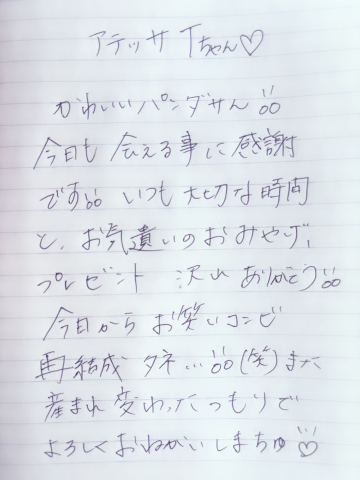 アテッサ Tちゃん♡
かわいいパンダサん
今日も 会える事に感謝
です いつも 大切な時間
と、お気遣いのおみやげ、
プレゼント 沢山 ありがとう
今日から お笑いコンビ
再結成 タネ…(笑)また
産まれ変わったつもりで
よろしくおねがいしまちゅ♡